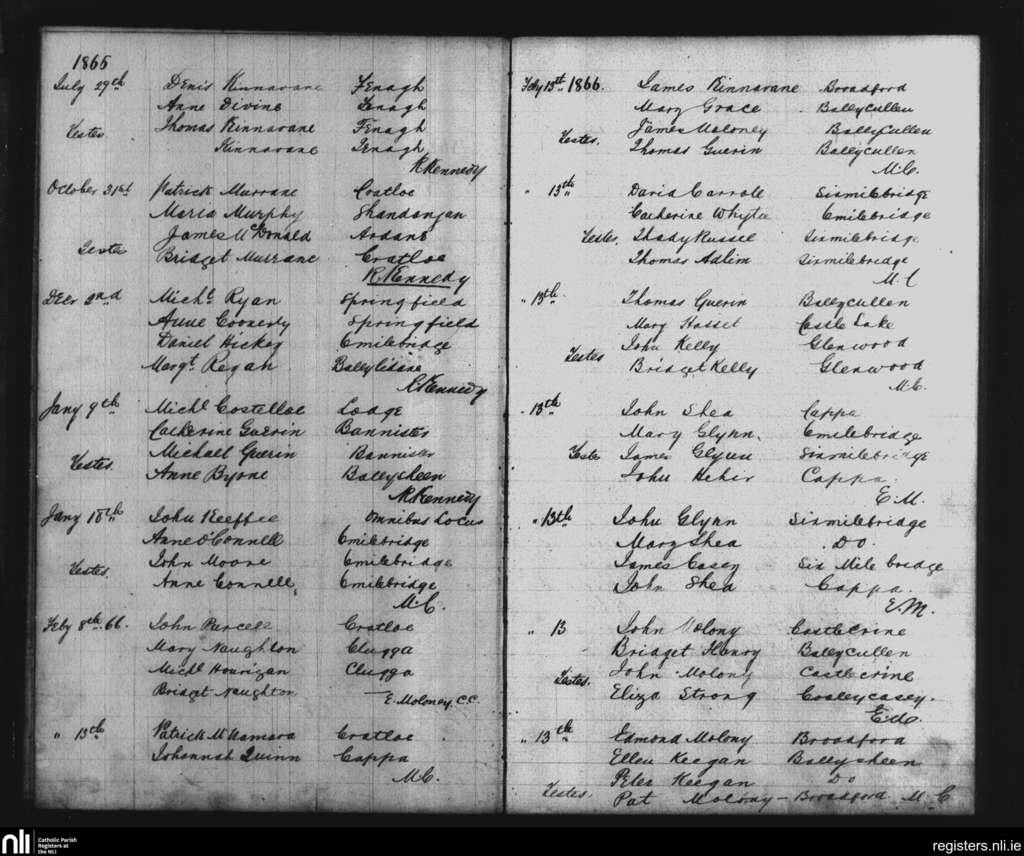 1865
July 29th Denis Kinnavane Fenagh
Anne Divine Fenagh
Testes Thomas Kinnavane Fenagh
Kinnavane Fenagh
R Kennedy
October 31st Patrick Murrane Cratloe
Maria Murphy Shandangan
James McDonald Ardane
Testes Bridget Murrane Cratloe
R. Kennedy
Decr 2nd Michl Ryan Springfield
Anne Springfield
Daniel Hickey 6milebridge
Margt Regan
R Kennedy
Jany 9th Michl Costelloe Lodge
Catherine Guerin Bannister
Michael Guerin Bannister
Testes. Anne Byrne Ballysheen
R Kennedy
Jany 18th John Keeffee Omnibus Locus
Anne O'Connell 6milebridge
John Moore 6milebridge
Testes. Anne Connell 6milebridge
M. C.
Feby 8th 66. John Purcell Cratloe
Mary Naughton Clugga
Michl Hourigan Clugga
Bridget Naughton
E. Moloney C.C.
" 13th Patrick McNamara Cratloe
Johannah Quinn Cappa
M. C.
Feby 13th 1866. James Kinnavane Broadford
Mary Grace Ballycullen
James Moloney Ballycullen
Testes. Thomas Guerin Ballycullen
M. C.
" 13th David Carroll Sixmilebridge
Catherine Whyte 6milebridge
Testes. Thady Russel Sixmilebridge
Thomas Adlim Sixmilebridge
M. C
" 13th Thomas Guerin Ballycullen
Mary Hasset Castle Lake
John Kelly Glenwood
Testes Bridget Kelly Glenwood
M. C.
" 13th John Shea Cappa
Mary Glynn. 6milebridge
Testes James Glynn Sixmilebridge
John Hehir Cappa.
E. M.
" 13th John Glynn Sixmilebridge
Mary Shea Do.
James Casey Six Mile bridge
John Shea Cappa.
E. M.
" 13 John Molony Castlecrine
Bridget Henry Ballycullen
John Molony Castlecrine
Testes. Eliza Strong Cooleycasey.
E. M.
" 13th Edmond Molony Broadford
Ellen Keegan Ballysheen
Peter Keegan Do
Testes. Pat Molony - Broadford M. C
nli Catholic Parish
Registers at
the NLI
registers.nli.ie